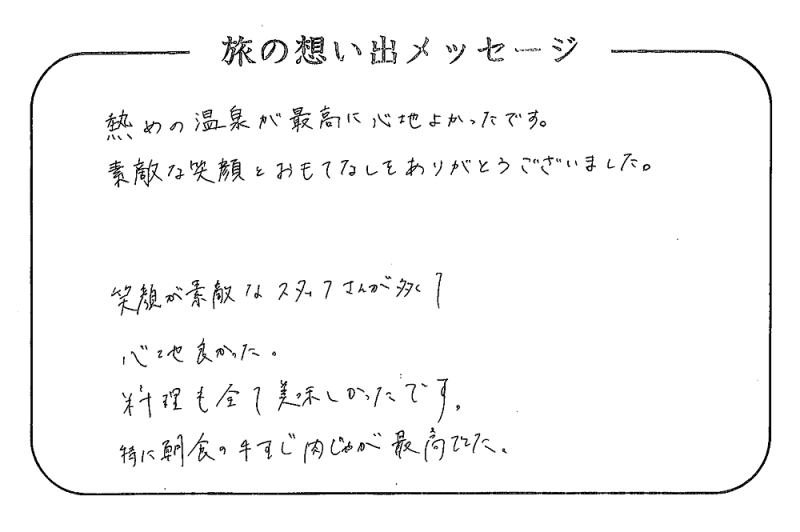 旅の想い出メッセージ
熱めの温泉が最高に心地よかったです。
素敵な笑顔とおもてなしをありがとうございました。
笑顔が素敵なスタッフさんが多くて
心地良かった。
料理も全て美味しかったです。
特に朝食の牛すじ肉じゃが最高でした。